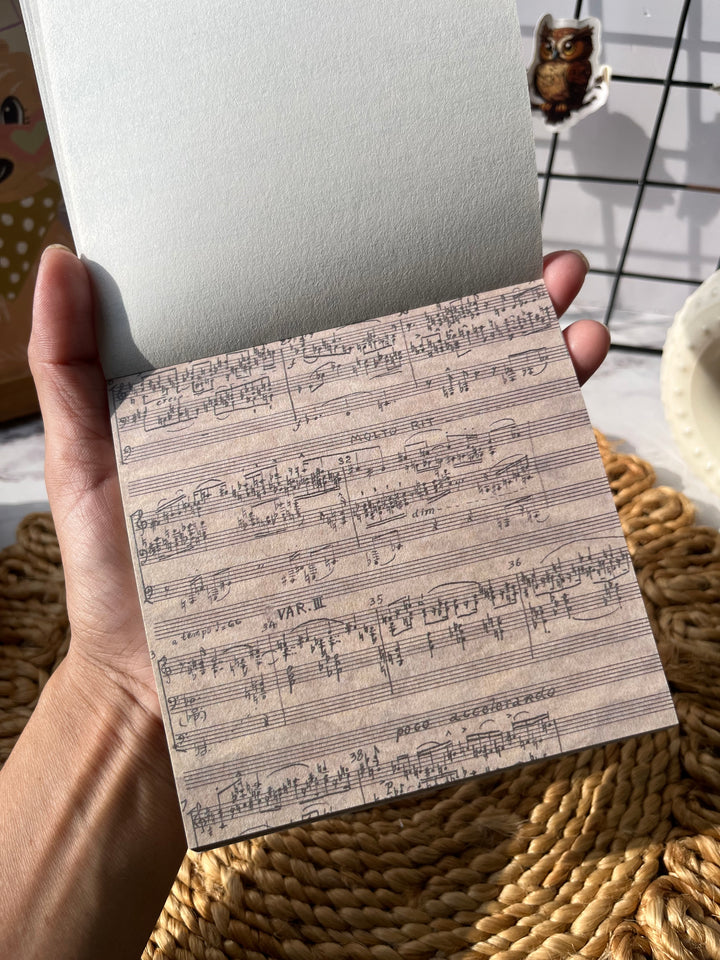 MOLTO RIT
31 32
dim
VAR. III
a tempo
34 35 36
poco accelerando
38
p